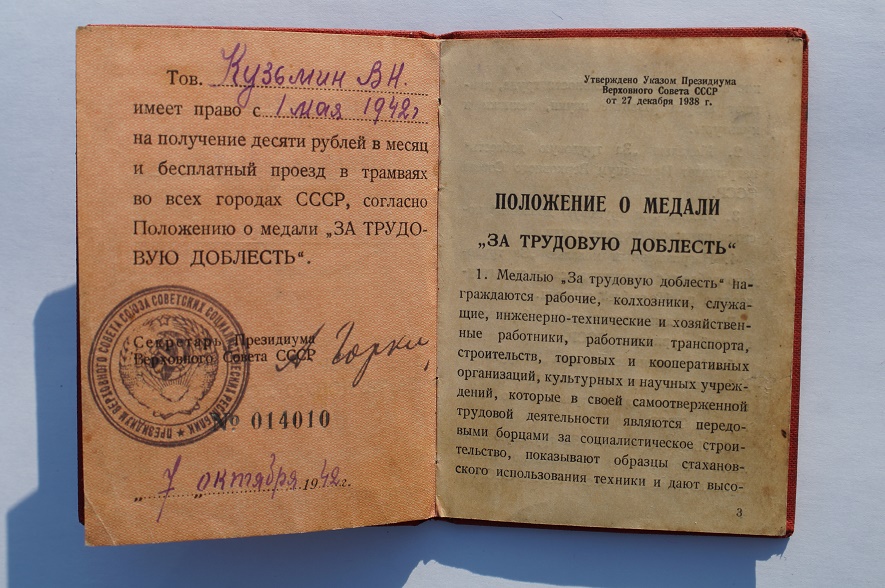 Тов. Кузьмин В.Н.
имеет право с 1 мая 1942 г
на получение десяти рублей в месяц
и бесплатный проезд в трамваях
во всех городах СССР, согласно
Положению о медали „ЗА ТРУДО-
ВУЮ ДОБЛЕСТЬ“.
Секретарь Президиума
Верховного Совета СССР
А Горкин
ПРЕЗИДИУМ ВЕРХОВНОГО СОВЕТА СОЮЗА СОВЕТСКИХ СОЦИАЛИСТИЧЕСКИХ РЕСПУБЛИК ★
№ 014010
„7„ октября 1942 г.
Утверждено Указом Президиума
Верховного Совета СССР
от 27 декабря 1938 г.
ПОЛОЖЕНИЕ О МЕДАЛИ
„ЗА ТРУДОВУЮ ДОБЛЕСТЬ“
1. Медалью „За трудовую доблесть“ на-
граждаются рабочие, колхозники, служа-
щие, инженерно-технические и хозяйствен-
ные работники, работники транспорта,
строительств, торговых и кооперативных
организаций, культурных и научных учреж-
дений, которые в своей самоотверженной
трудовой деятельности являются передо-
выми борцами за социалистическое строи-
тельство, показывают образцы стаханов-
ского использования техники и дают высо-
3